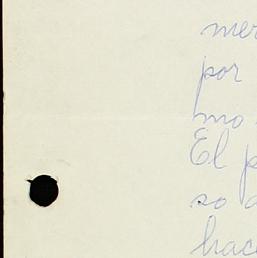 mer
por
mo
El p
so a
hac